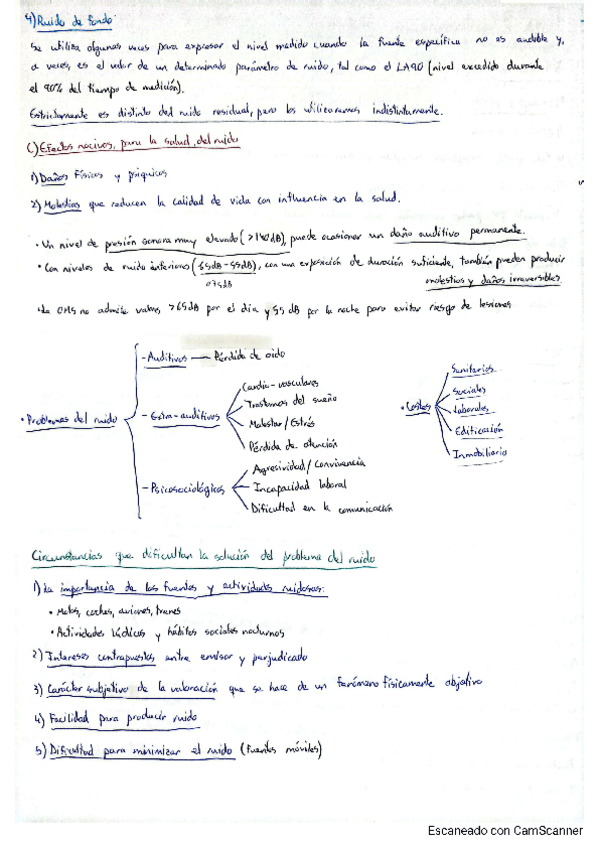 4) Ruido de fondo:
Se utiliza algunas veces para expresar el nivel medido cuando la fuente específica no es audible y,
a veces, es el valor de un determinado parámetro de ruido, tal como el LA90 (nivel excedido durante
el 90% del tiempo de medición).
Estrictamente es distinto del ruido residual, pero los utilizaremos indistintamente.
C) Efectos nocivos, para la salud, del ruido
1) Daños físicos y psíquicos
2) Molestias que reducen la calidad de vida con influencia en la salud.
· Un nivel de presión sonora muy elevado (>140 dB), puede ocasionar un daño auditivo permanente.
· Con niveles de ruido inferiores ( dB - dB), con una exposición de duración suficiente, también pueden producir
molestias y daños irreversibles.
· La OMS no admite valores >65dB por el día y 55 dB por la noche para evitar riesgo de lesiones
· Problemas del ruido
- Auditivos — Pérdida de oido
- Extra-auditivos
Cardio-vasculares
Trastornos del sueño
Malestar / Estrés
Pérdida de atención
- Psicosociológicos
Agresividad / Convivencia
Incapacidad laboral
Dificultad en la comunicación
· Costes
Sanitarios
Sociales
Laborales
Edificación
Inmobiliario
Circunstancias que dificultan la solución del problema del ruido
1) La importancia de las fuentes y actividades ruidosas:
· Motos, coches, aviones, trenes
· Actividades lúdicas y hábitos sociales nocturnos
2) Intereses contrapuestos entre emisor y perjudicado
3) Carácter subjetivo de la valoración que se hace de un fenómeno físicamente objetivo
4) Facilidad para producir ruido
5) Dificultad para minimizar el ruido (fuentes móviles)
Escaneado con CamScanner